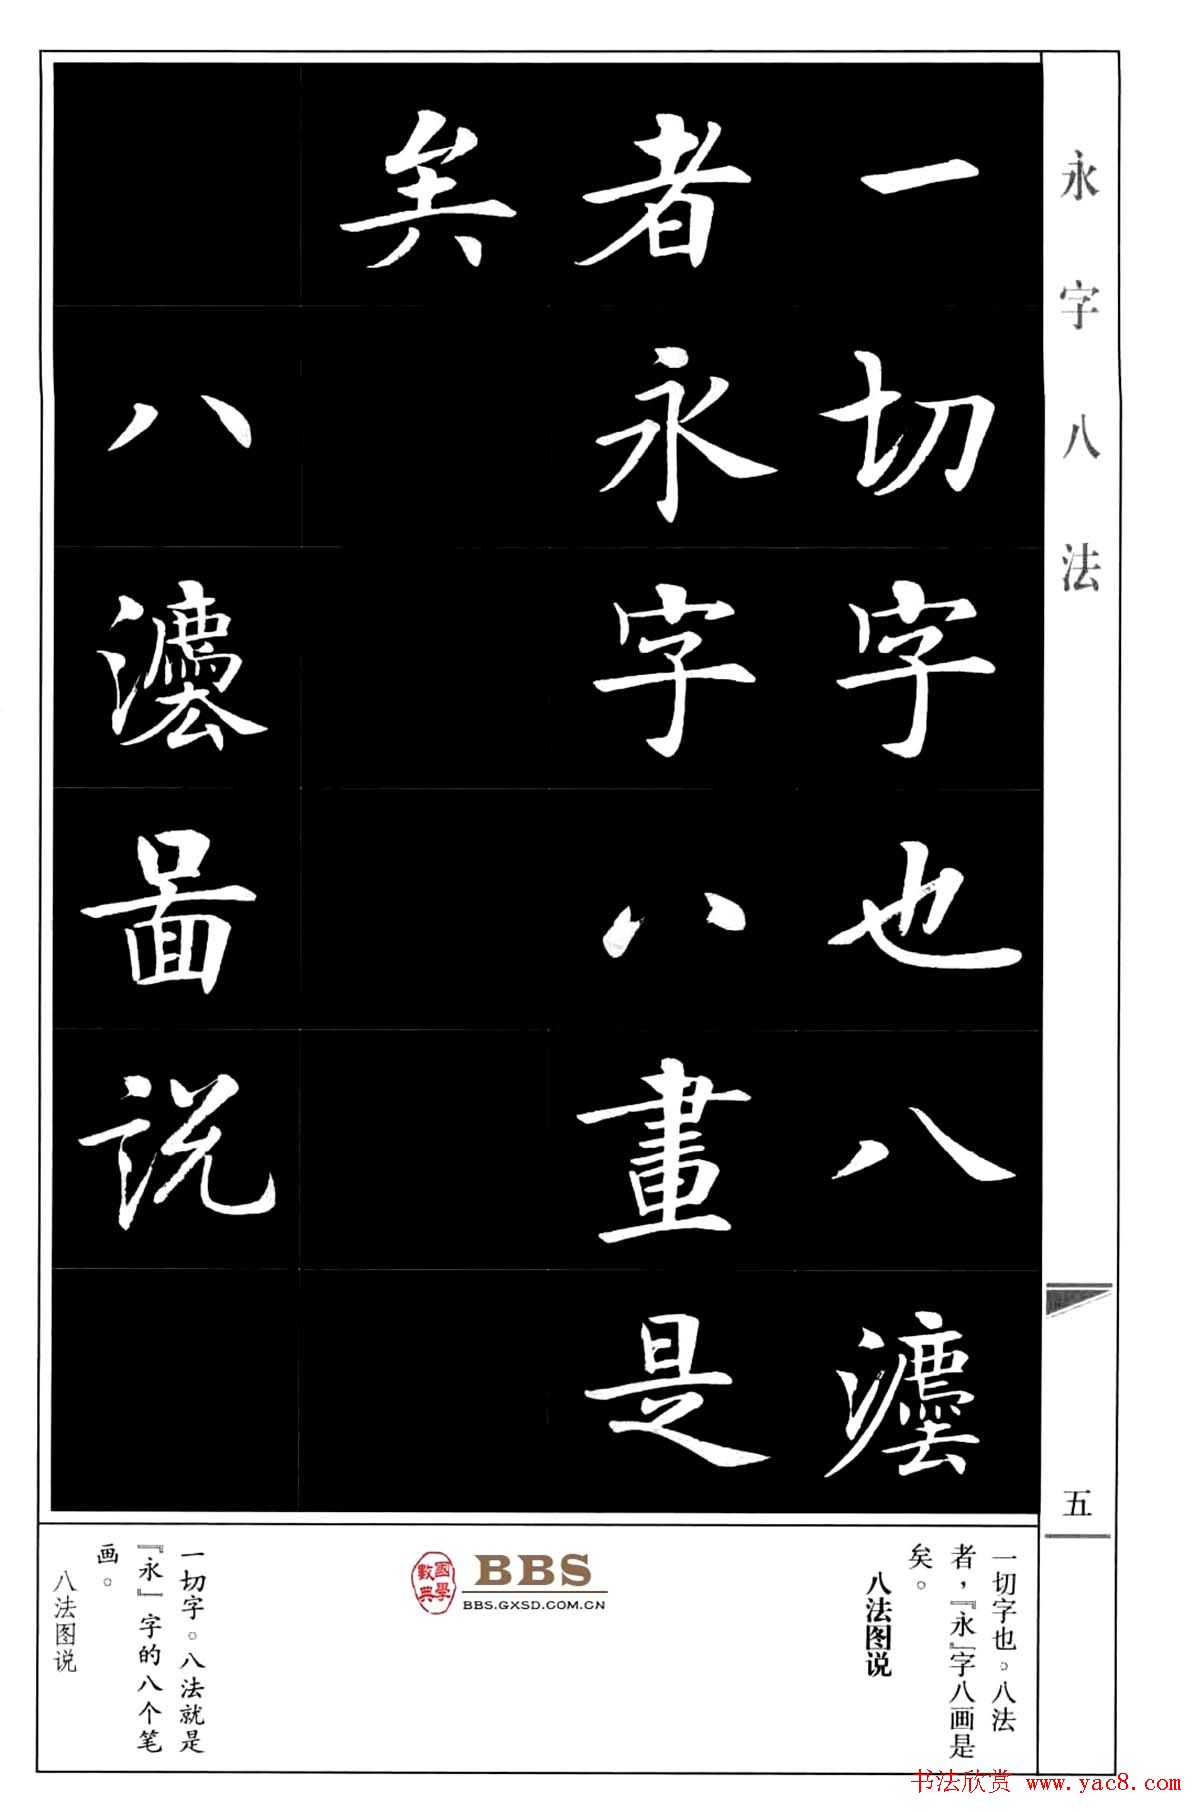 永字八法
一切字也八灋
者永字八畫是
矣
八灋圖説
五
一切字也。八法
者，『永』字八画是
矣。
八法图说
國學數典
BBS
BBS.GXSD.COM.CN
一切字。八法就是
『永』字的八个笔
画。
八法图说
书法欣赏 www.yac8.com